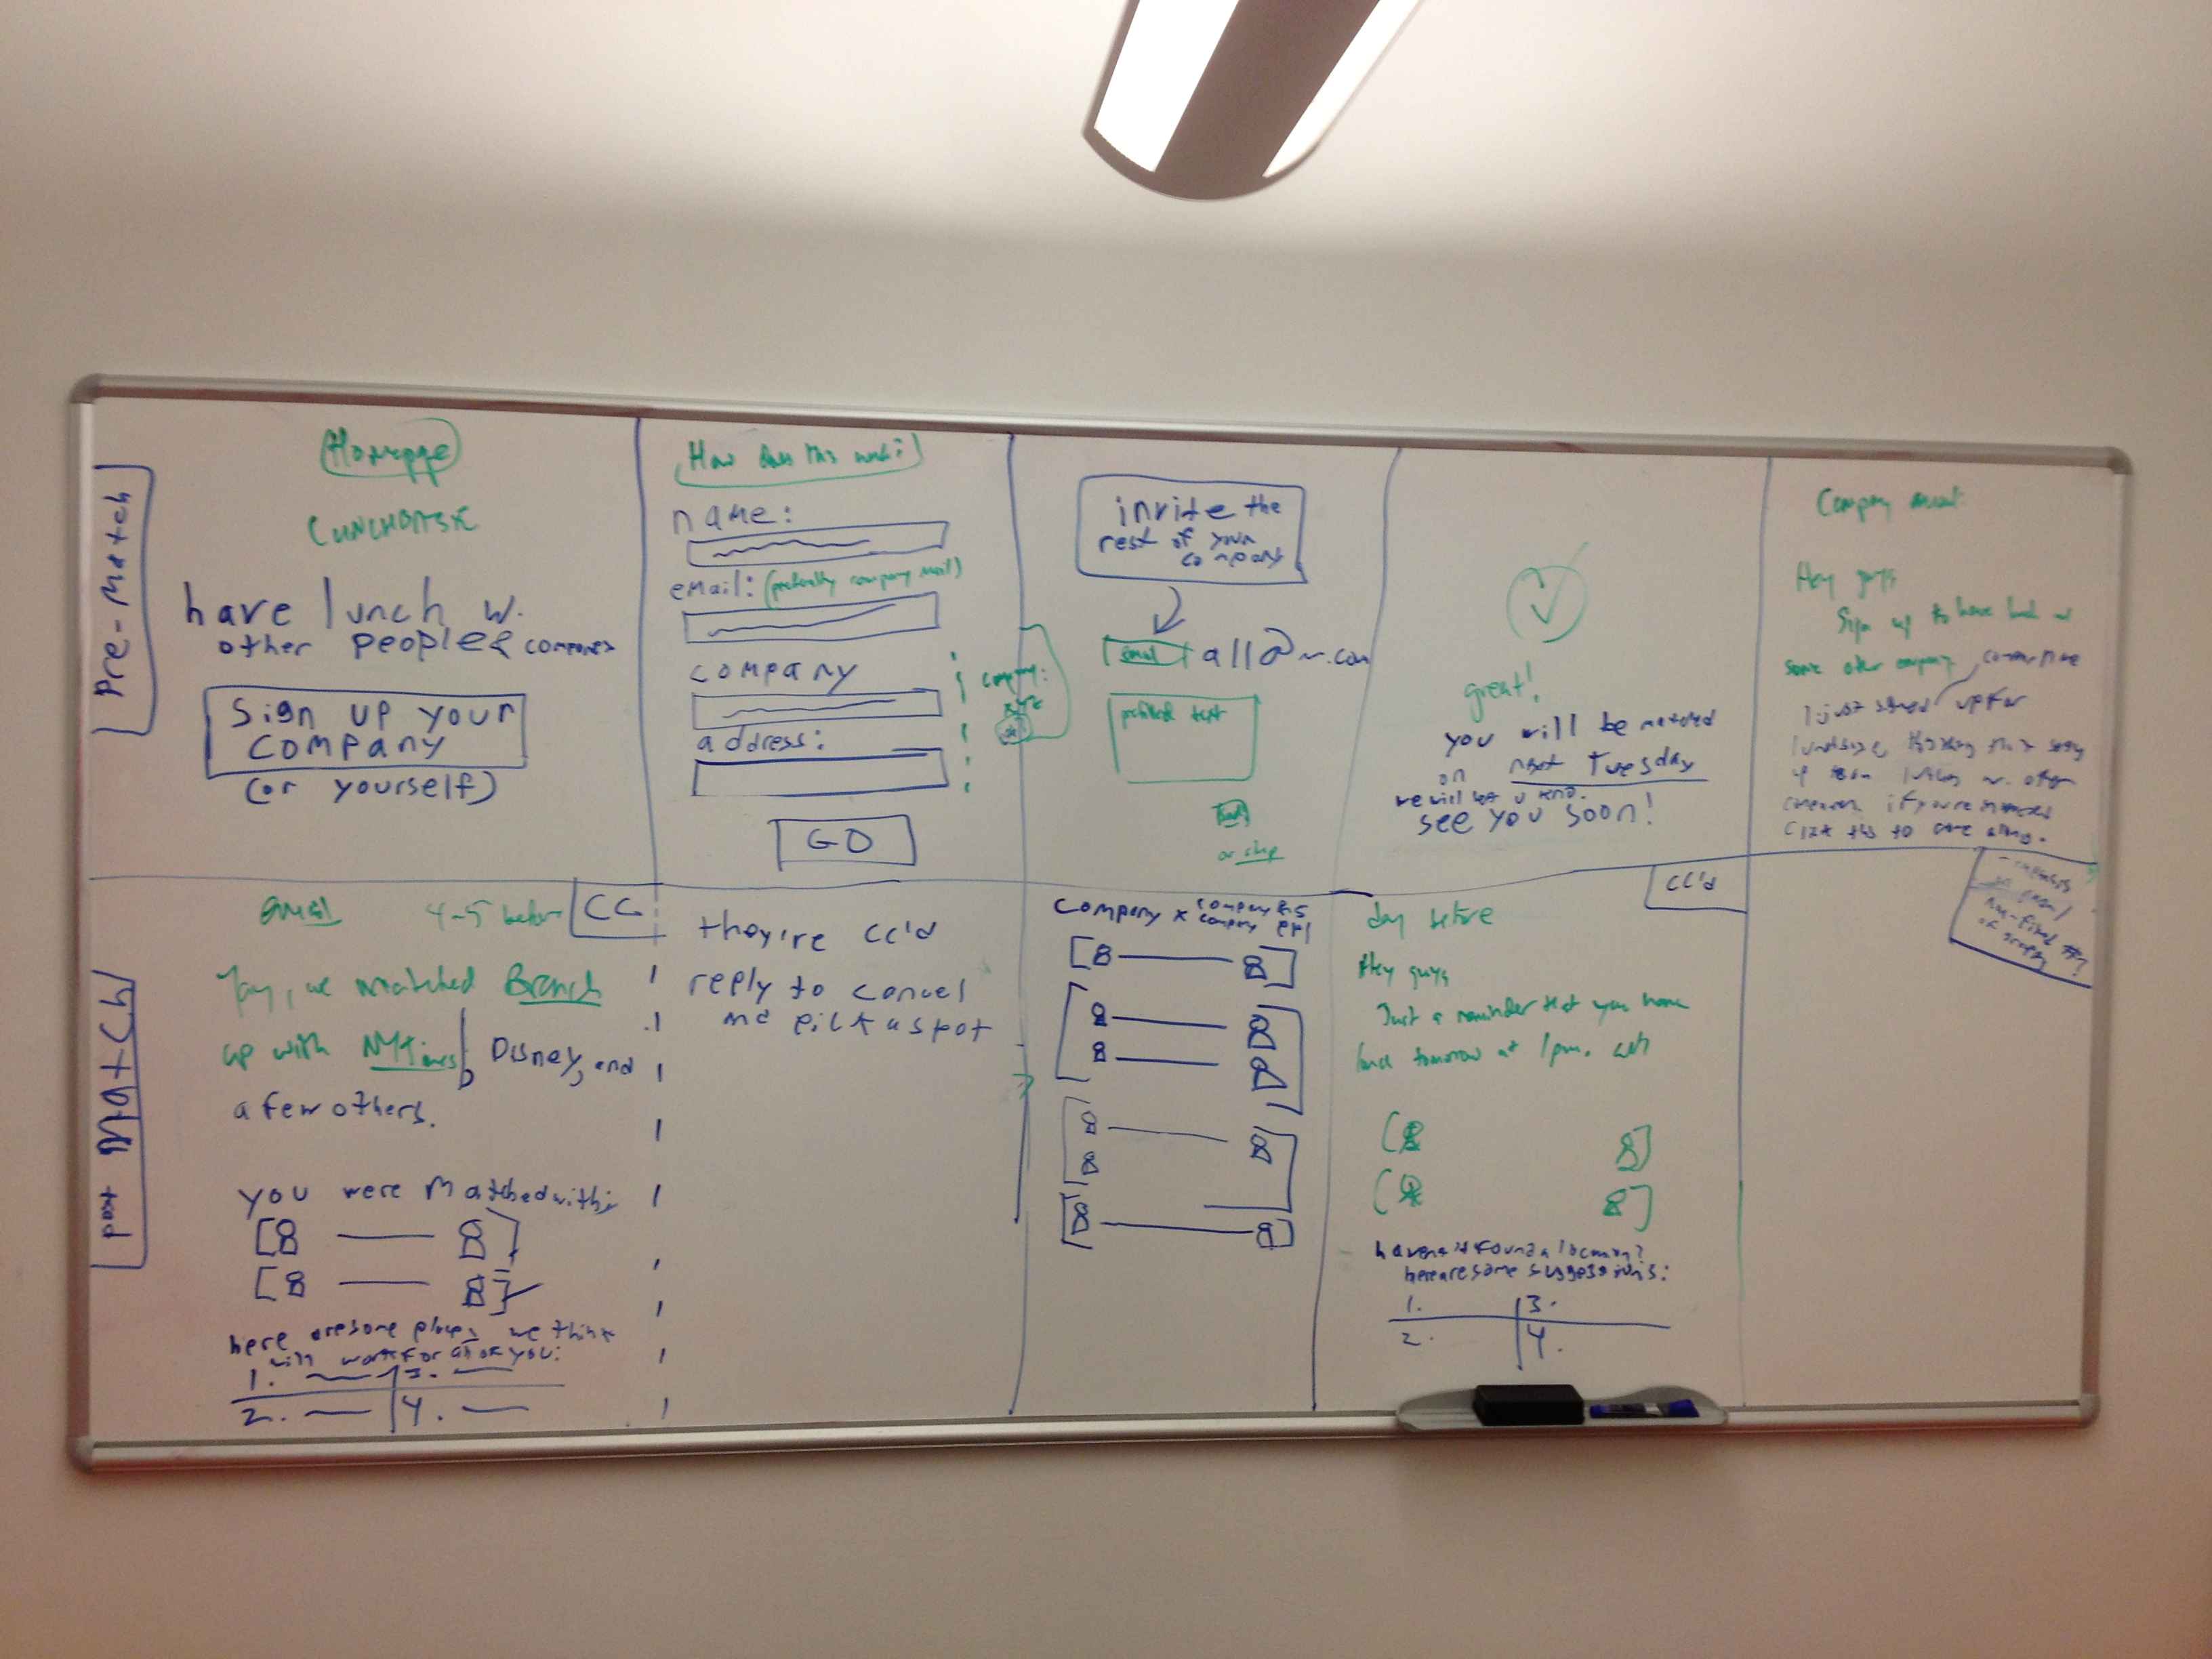 Pre-Match
Homepage
LUNCHDATE
have lunch w.
other people & companies
Sign up your
company
(or yourself)
How does this work?
name:
email: (preferably company mail)
company
address:
GO
company:
invite the
rest of your
company
email all@ .com
prefilled text
or skip
great!
you will be matched
on next Tuesday
we will let u know.
see you soon!
Company email
Hey guys
Sign up to have lunch w
some other company
I just signed up for
w. other
if you're interested
click this to come along.
post Match
email 4-5 before
CC
Yay, we matched Branch
up with NYTimes, Disney, and
a few others.
you were matched with:
here are some places we think
will work for all of you:
1. 3.
2. 4.
they're cc'd
reply to cancel
and pick a spot
company x company
company
CC'd
day before
Hey guys
Just a reminder that you have
lunch tomorrow at 1pm. with
haven't found a location?
here are some suggestions:
1. 3.
2. 4.